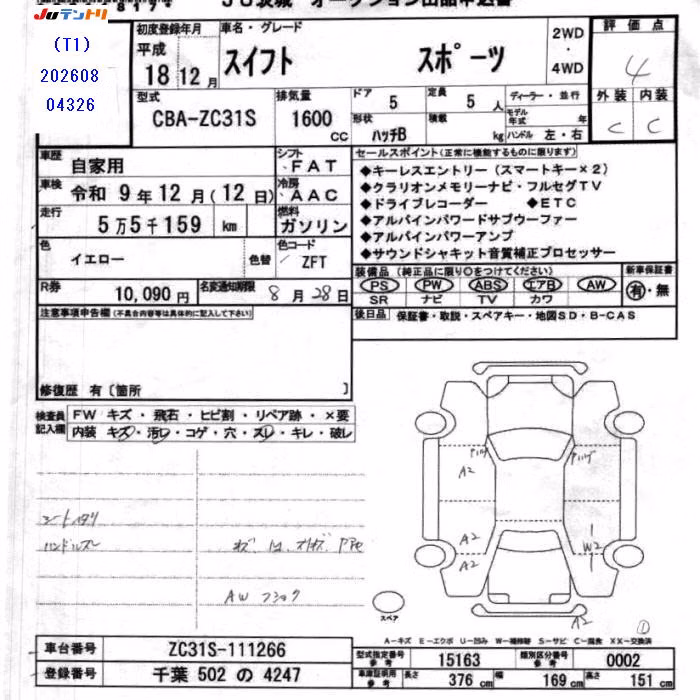 JUテントリ
8194
JU茨城 オークション出品申込書
(T1)
202608
04326
初度登録年月
車名・グレード
2WD
・
4WD
評価点
平成
18 12月
スイフト スポーツ
4
外装 内装
C C
型式
排気量
ドア 5
定員 5 人
ディーラー・並行
CBA-ZC31S
1600 cc
形状 ハッチB
積載 kg
モデル年式 年
ハンドル 左・右
車歴 自家用
シフト FAT
車検 令和 9年12月(12日)
冷房 AAC
走行 5万5千159 km
燃料 ガソリン
色 イエロー
色替
色コード ZFT
R券 10,090円
名変通知期限 8月28日
セールスポイント(正常に機能するものに限ります)
◆キーレスエントリー(スマートキー×2)
◆クラリオンメモリーナビ・フルセグTV
◆ドライブレコーダー ◆ETC
◆アルパインパワードサブウーファー
◆アルパインパワーアンプ
◆サウンドシャキット音質補正プロセッサー
装備品(純正品に限り○をつけてください)
新車保証書
PS PW ABS エアB AW
有・無
SR ナビ TV カワ
後日品 保証書・取説・スペアキー・地図SD・B-CAS
注意事項申告欄(不具合内容等は具体的に記入して下さい)
修復歴 有〔箇所 〕
検査員記入欄
FW キズ・飛石・ヒビ割・リペア跡・×要
内装 キズ・汚レ・コゲ・穴・スレ・キレ・破レ
シートヘタリ
ハンドルスレ
AW
A2
A2
A2
W2
A2
スペア
①
A-キズ E-エクボ U-凹み W-補修跡 S-サビ C-腐食 XX-交換済
車台番号 ZC31S-111266
登録番号 千葉 502 の 4247
型式指定番号 参考 15163
類別区分番号 参考 0002
車庫証明用 参考 長さ 376 cm 幅 169 cm 高さ 151 cm